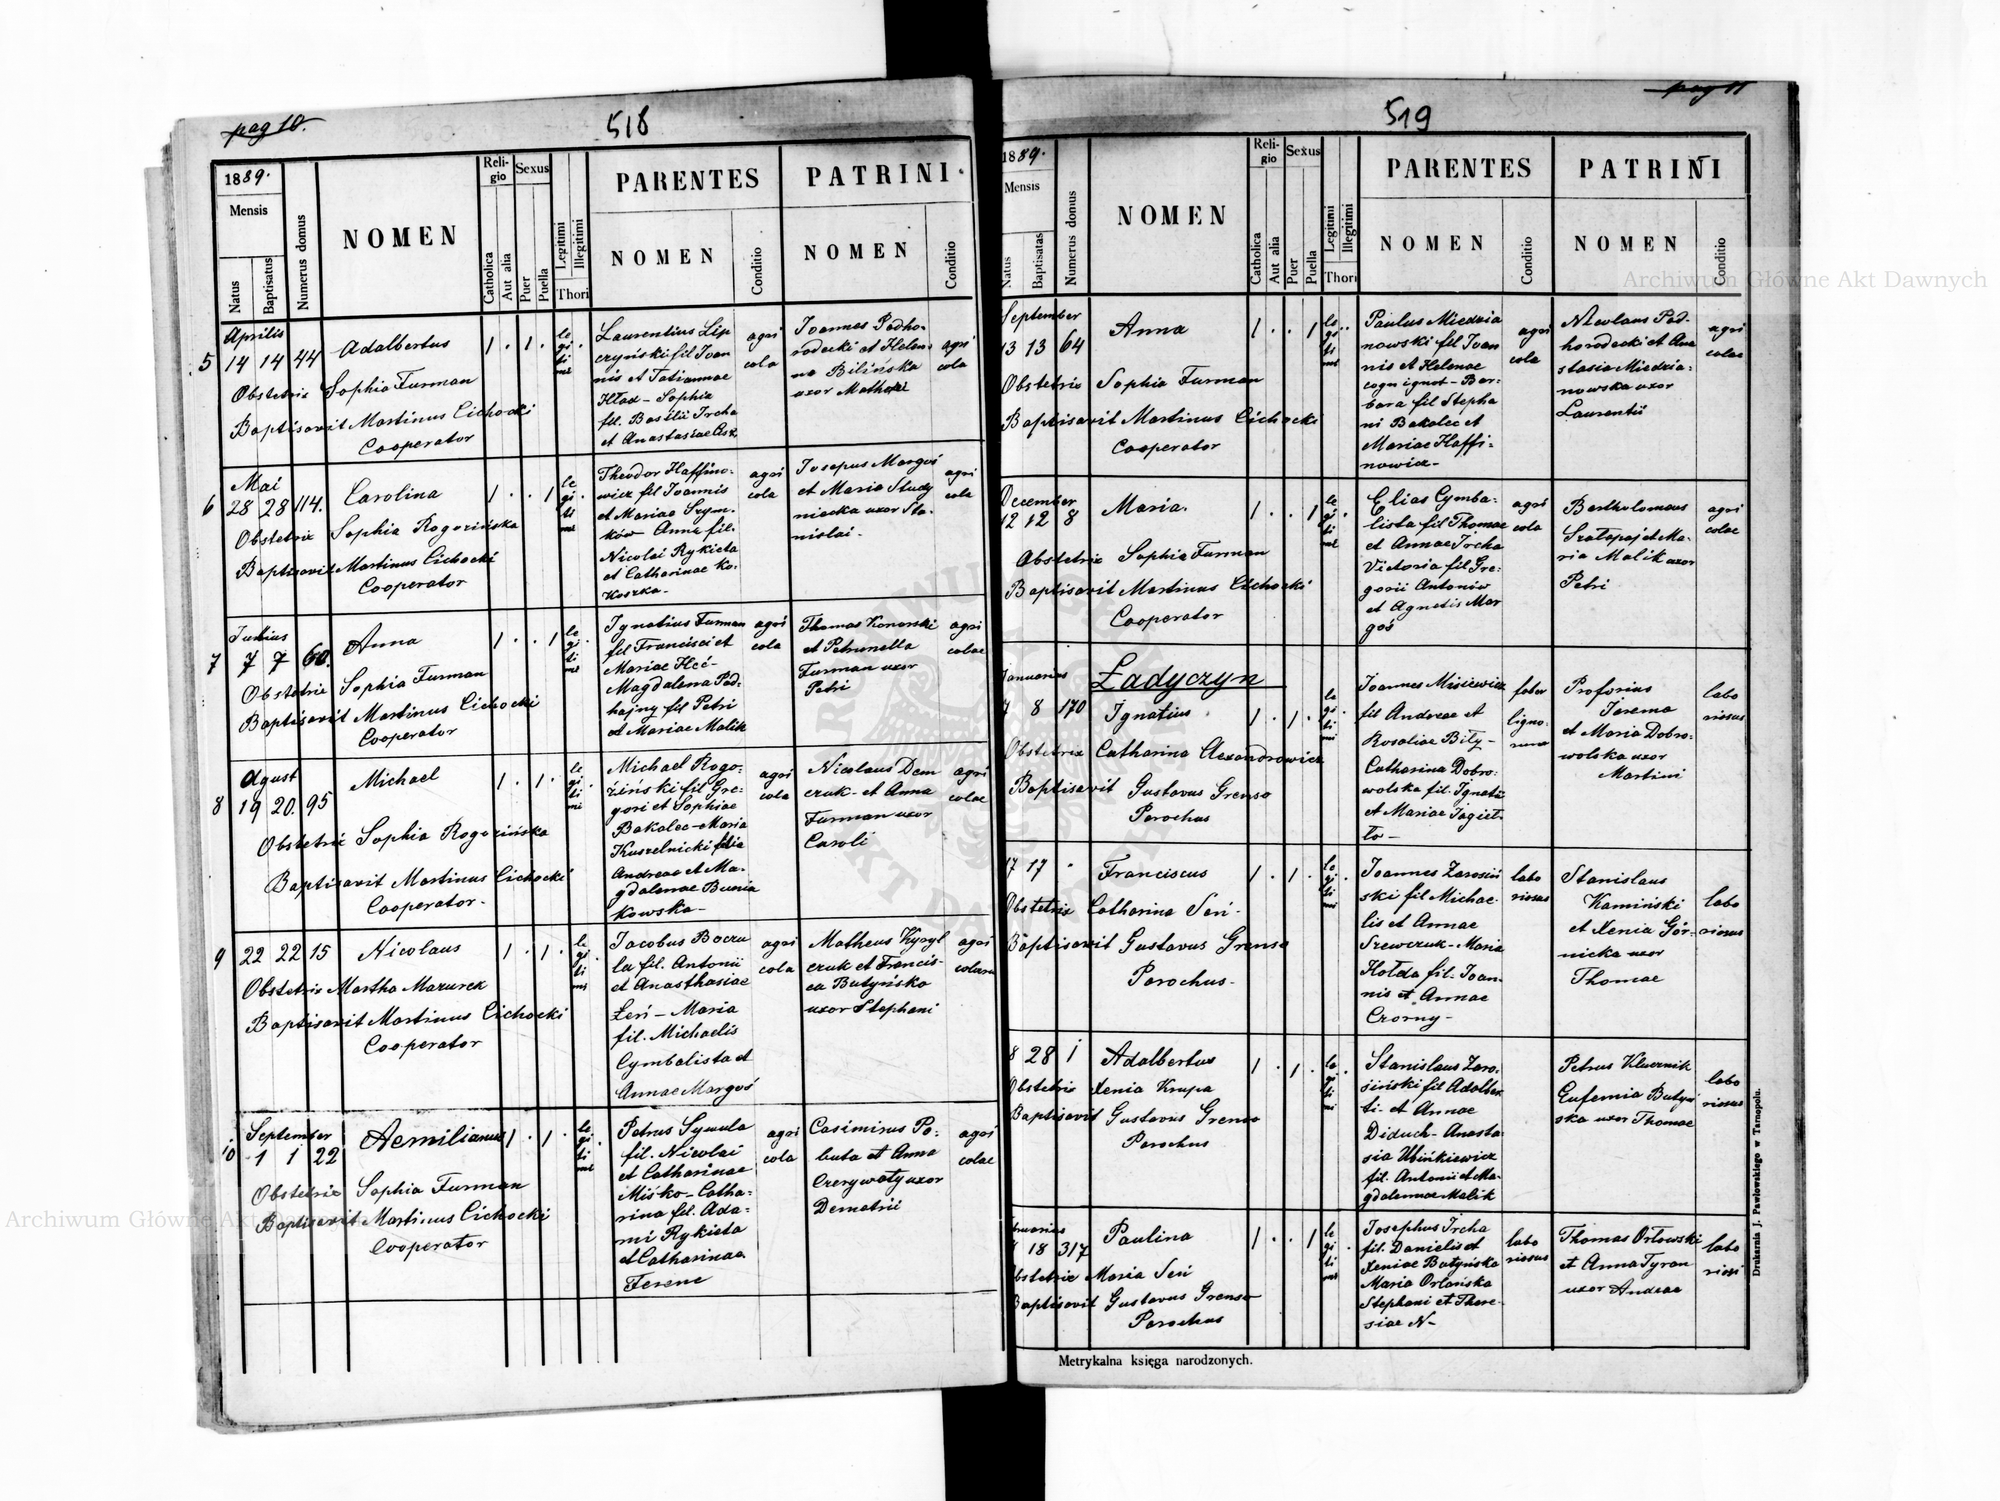 pag 10.
518
1889.
Mensis
Natus
Baptisatus
Numerus domus
NOMEN
Religio
Catholica
Aut alia
Sexus
Puer
Puella
Legitimi
Illegitimi
Thori
PARENTES
NOMEN
Conditio
PATRINI
NOMEN
Conditio
Aprilis
5 14 14 44 Adalbertus 1 . 1 .
legitimi
Obstetrix Sophia Furman
Baptisavit Martinus Cichocki
Cooperator
Laurentius Lip
czyński fil Joan
nis et Tatiannae
Hład - Sophia
fil. Basilii Ircha
et Anastasiae
agri
cola
Joannes Podho-
rodecki et Hele-
na Bilińska
uxor Mathaei
agri
cola
Mai
6 28 28 114. Carolina 1 . . 1
legitimi
Obstetrix Sophia Rogozińska
Baptisavit Martinus Cichocki
Cooperator
Theodor Haffino-
wicz fil Joannis
et Mariae Szym-
ków - Anna fil.
Nicolai Rykieta
et Catharinae Ko-
koszka -
agri
cola
Josepus Margoś
et Maria Study
niacka uxor Sta-
nislai -
agri
cola
Junius
7 7 7 60. Anna 1 . . 1
legitimi
Obstetrix Sophia Furman
Baptisavit Martinus Cichocki
Cooperator
Ignatius Furman
fil Francisci et
Mariae Heć -
Magdalena Pod-
hajny fil Petri
et Mariae Malik
agri
cola
Thomas Konarski
et Petrunella
Furman uxor
Petri
agri
colae
Agust
8 19 20. 95 Michael 1 . 1 .
legitimi
Obstetrix Sophia Rogozińska
Baptisavit Martinus Cichocki
Cooperator -
Michael Rogo-
ziński fil Gre-
gori et Sophiae
Bakalec - Maria
Kuszelnicki filia
Andreae et Ma-
gdalenae Bunia
kowska -
agri
cola
Nicolaus Dem
czuk - et Anna
Furman uxor
Caroli
agri
colae
9 22 22 15 Nicolaus 1 . 1 .
legitimi
Obstetrix Martha Mazurek
Baptisavit Martinus Cichocki
Cooperator
Jacobus Boczu
la fil. Antonii
et Anasthasiae
Łeń - Maria
fil. Michaelis
Cymbalista et
Annae Margoś
agri
cola
Matheus Kyryl
czuk et Francis-
ca Butyńska
uxor Stephani
agri
September
10 1 1 22 Aemilianus 1 . 1 .
legitimi
Obstetrix Sophia Furman
Baptisavit Martinus Cichocki
Cooperator
Petrus Sywula
fil. Nicolai
et Catharinae
Miśko - Catha-
rina fil. Ada-
mi Rykieta
et Catharinae
Ferenc
agri
cola
Casimirus Po-
buta et Anna
Czerywaty uxor
Demetrii
agri
colae
pag 11
519
1889.
Mensis
Natus
Baptisatas
Numerus domus
NOMEN
Religio
Catholica
Aut alia
Sexus
Puer
Puella
Legitimi
Illegitimi
Thori
PARENTES
NOMEN
Conditio
PATRINI
NOMEN
Conditio
September
13 13 64 Anna 1 . . 1
legitimi
Obstetrix Sophia Furman
Baptisavit Martinus Cichocki
Cooperator
Paulus Miedzia
nowski fil Joan
nis et Helenae
cogn ignot - Bar-
bara fil Stepha
ni Bakalec et
Mariae Haffi-
nowicz -
agri
cola
Nicolaus Pod-
horodecki et Ana
stasia Miedzia-
nowska uxor
Laurentii
agri
colae
December
12 12 8 Maria. 1 . . 1
legitimi
Obstetrix Sophia Furman
Baptisavit Martinus Cichocki
Cooperator
Elias Cymba-
lista fil Thomae
et Annae Ircha
Victoria fil Gre-
gorii Antonów
et Agnetis Mar
goś
agri
cola
Bartholomaus
Szatapaj et Ma-
ria Malik uxor
Petri
agri
colae
Ładyczyn
Januarius
8 170 Ignatius 1 . 1 .
legitimi
Obstetrix Catharina Alexandrowicz
Baptisavit Gustavus Grenso
Parochus
Joannes Misiewicz
fil Andreae et
Rosaliae Bily -
Catharina Dobro-
wolska fil. Ignatii
et Mariae Jagieł-
ło -
faber
ligno-
Proforius
Jarema
et Maria Dobro-
wolska uxor
Martini
labo
riosus
17 17 . Franciscus 1 . 1 .
legitimi
Obstetrix Catharina Seń -
Baptisavit Gustavus Grenso
Parochus -
Joannes Zarosiń
ski fil Michae-
lis et Annae
Szewczuk - Maria
Hołda fil. Joan-
nis et Annae
Czorny -
labo
riosus
Stanislaus
Kamiński
et Xenia Gór-
nicka uxor
Thomae
labo
riosus
8 28 1 Adalbertus 1 . 1 .
legitimi
Obstetrix Xenia Krupa
Baptisavit Gustavus Grenso
Parochus
Stanislaus Zaro-
siński fil Adalber
ti - et Annae
Diduch - Anasta-
sia Ubińkiewicz
fil. Antonii et Ma-
gdalennae Malik
Petrus Klucznik
Eufemia Butyń
ska uxor Thomae
labo
riosus
18 317 Paulina 1 . . 1
legitimi
Obstetrix Maria Seń
Baptisavit Gustavus Grenso
Parochus
Josephus Ircha
fil. Danielis et
Xeniae Butyńska
Maria Orlańska
Stephani et There-
siae N -
labo
riosus
Thomas Orłowski
et Anna Tyran
uxor Andreae
labo
riosi
Metrykalna księga narodzonych.
Drukarnia J. Pawłowskiego w Tarnopolu.
Archiwum Główne Akt Dawnych
Archiwum Główne Akt Dawnych